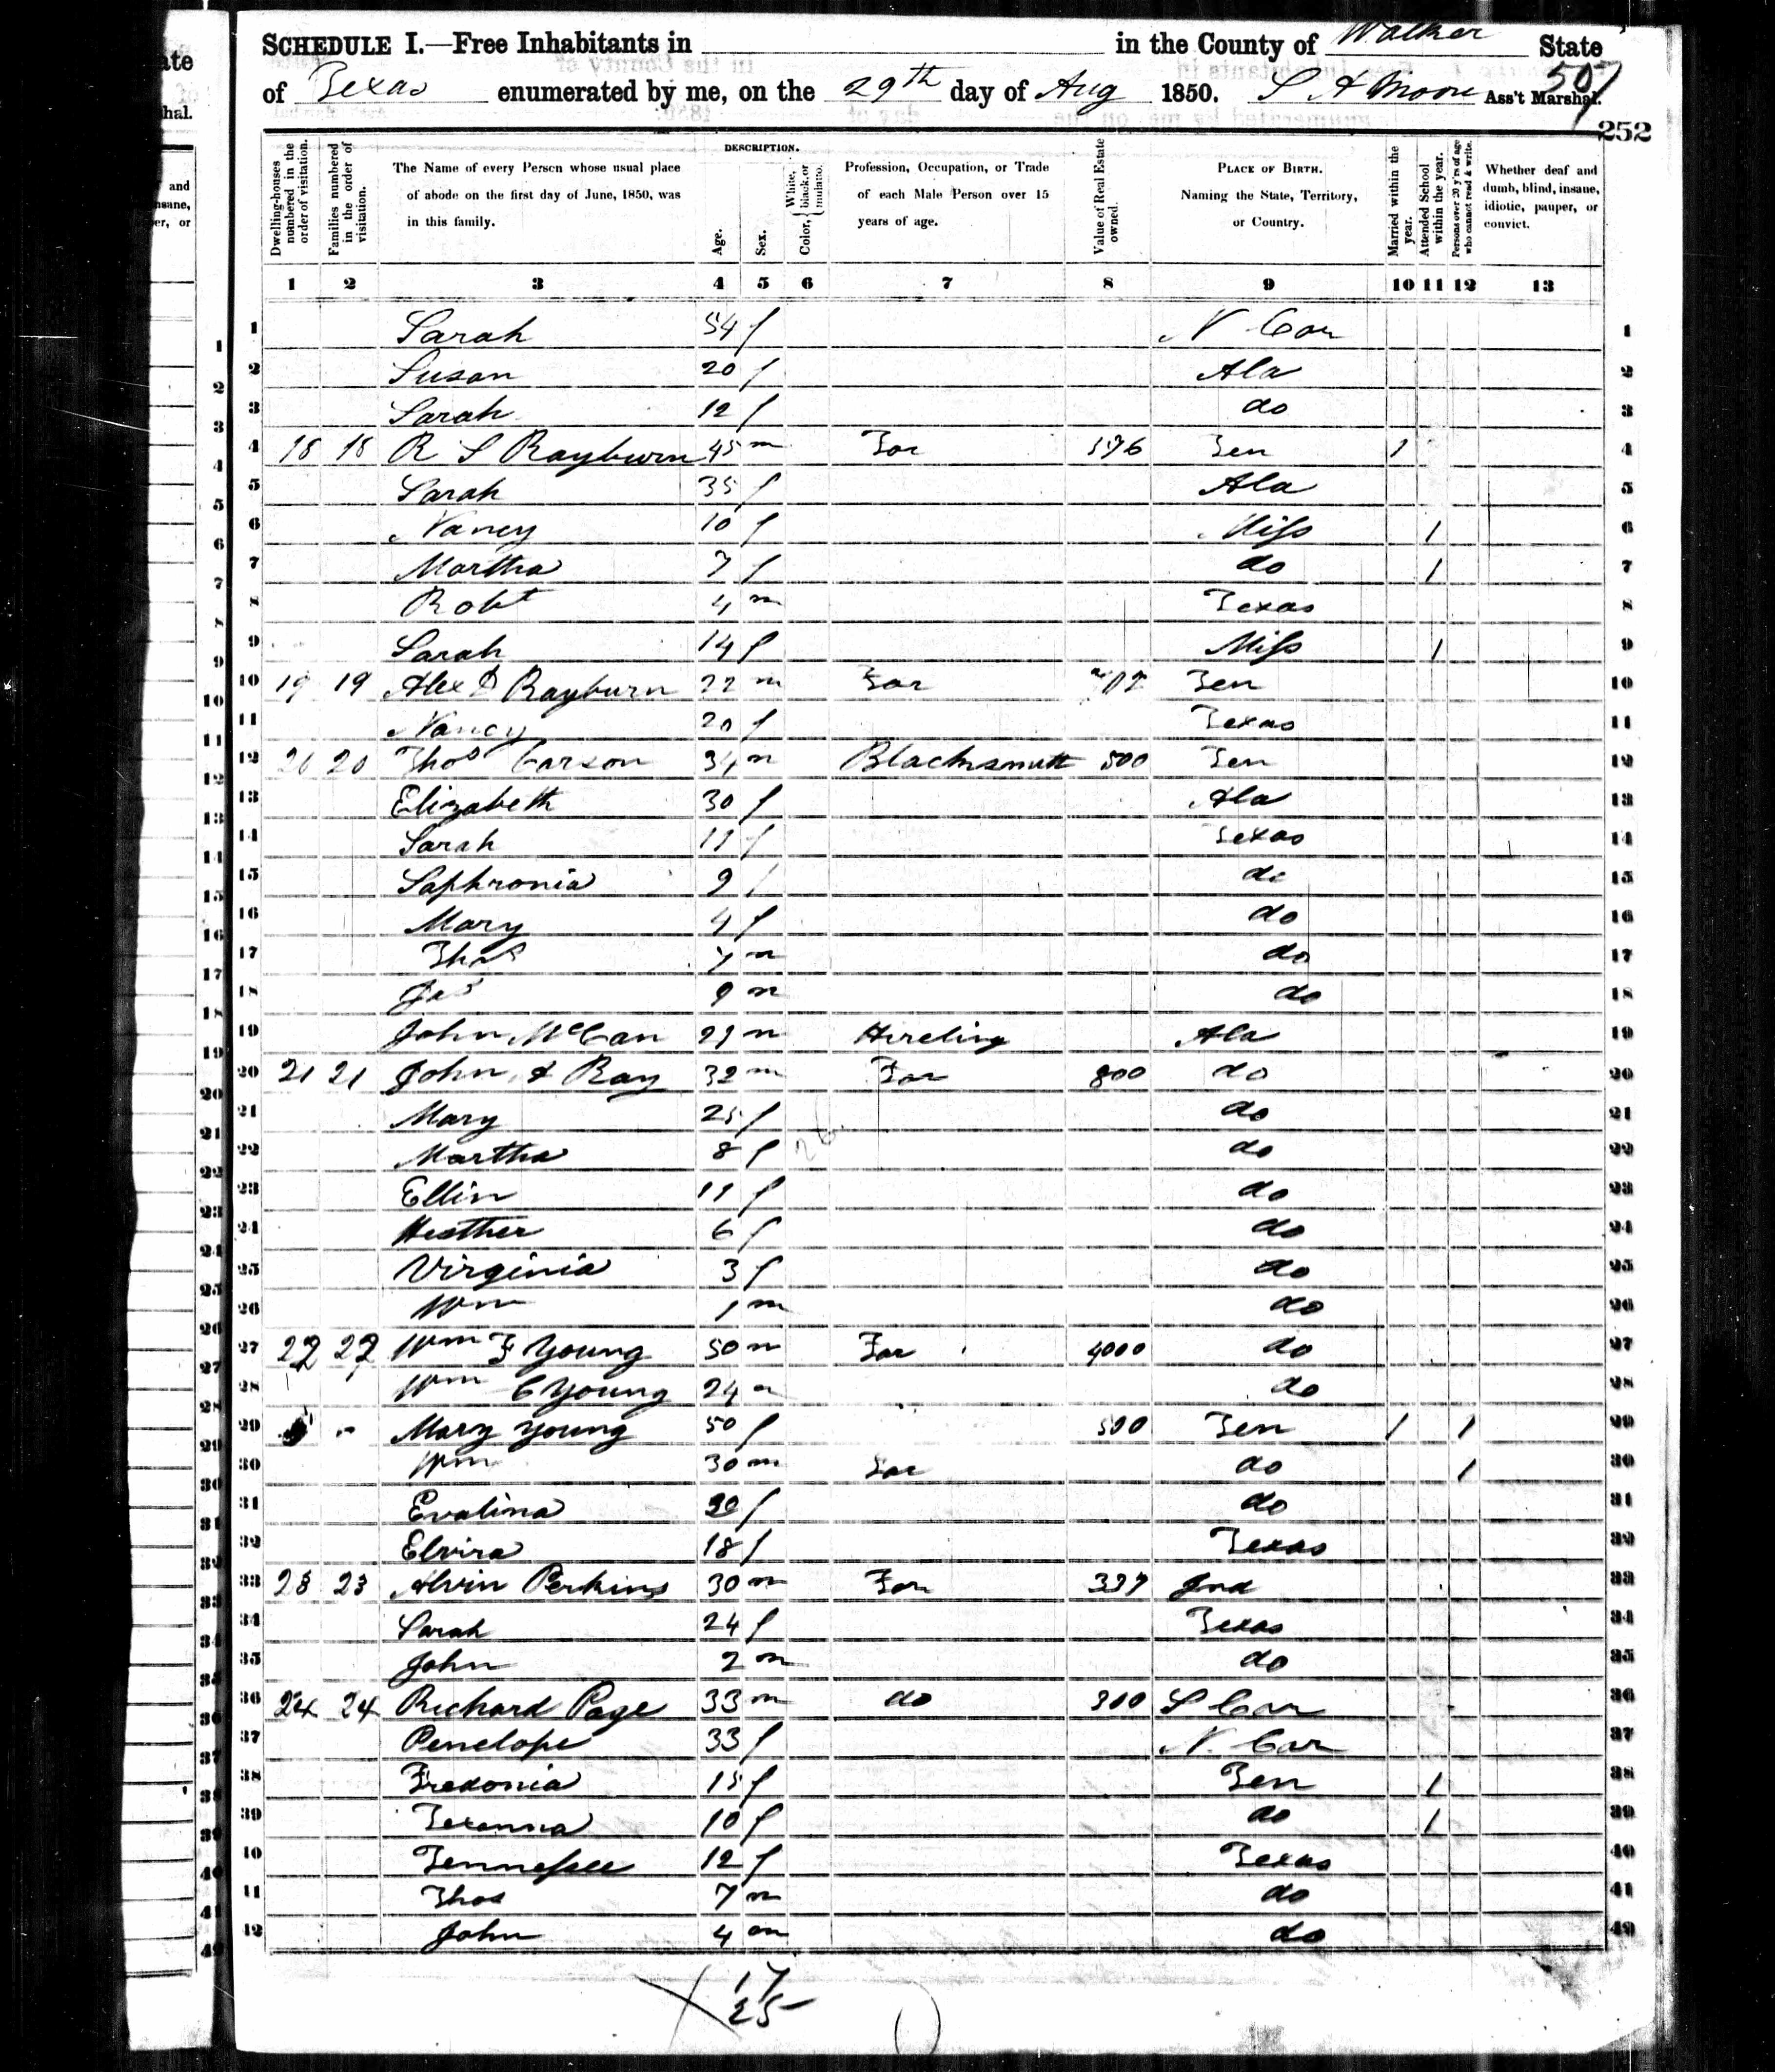 SCHEDULE I.—Free Inhabitants in in the County of Walker State
of Texas enumerated by me, on the 29th day of Aug 1850. S A Moore Ass't Marshal.
507
252
DESCRIPTION.
Dwelling-houses numbered in the order of visitation.
Families numbered in the order of visitation.
The Name of every Person whose usual place of abode on the first day of June, 1850, was in this family.
Age.
Sex.
Color, { White, black, or mulatto.
Profession, Occupation, or Trade of each Male Person over 15 years of age.
Value of Real Estate owned.
PLACE OF BIRTH. Naming the State, Territory, or Country.
Married within the year.
Attended School within the year.
Persons over 20 y'rs of age who cannot read & write.
Whether deaf and dumb, blind, insane, idiotic, pauper, or convict.
1 2 3 4 5 6 7 8 9 10 11 12 13
1 Sarah 54 f N Car 1
2 Susan 20 f Ala 2
3 Sarah 12 f do 3
4 18 18 R S Rayburn 45 m Far 576 Ten 1 4
5 Sarah 35 f Ala 5
6 Nancy 10 f Miss 1 6
7 Martha 7 f do 1 7
8 Robt 4 m Texas 8
9 Sarah 14 f Miss 1 9
10 19 19 Alex D Rayburn 22 m Far Ten 10
11 Nancy 20 f Texas 11
12 20 20 Thos Carson 34 m Blacksmith 500 Ten 12
13 Elizabeth 30 f Ala 13
14 Sarah 11 f Texas 14
15 Saphronia 9 f do 15
16 Mary 4 f do 16
17 Thos m do 17
18 Jas 9 m do 18
19 John McCan 21 m Hireling Ala 19
20 21 21 John A Ray 32 m Far 800 do 20
21 Mary 25 f do 21
22 Martha 8 f do 22
23 Ellin 11 f do 23
24 Hesther 6 f do 24
25 Virginia 3 f do 25
26 Wm 1 m do 26
27 22 22 Wm F Young 50 m Far 4000 do 27
28 Wm C Young 24 m do 28
29 Mary Young 50 f 500 Ten 1 1 29
30 Wm 30 m Far do 1 30
31 Evalina f do 31
32 Elvira 18 f Texas 32
33 23 23 Alvin Perkins 30 m Far 337 Ind 33
34 Sarah 24 f Texas 34
35 John 2 m do 35
36 24 24 Richard Page 33 m do 300 S Car 36
37 Penelope 33 f N. Car 37
38 Fredonia 15 f Ten 1 38
39 Texanna 10 f do 1 39
40 Tennessee 12 f Texas 40
41 Thos 7 m do 41
42 John 4 m do 42
17
25